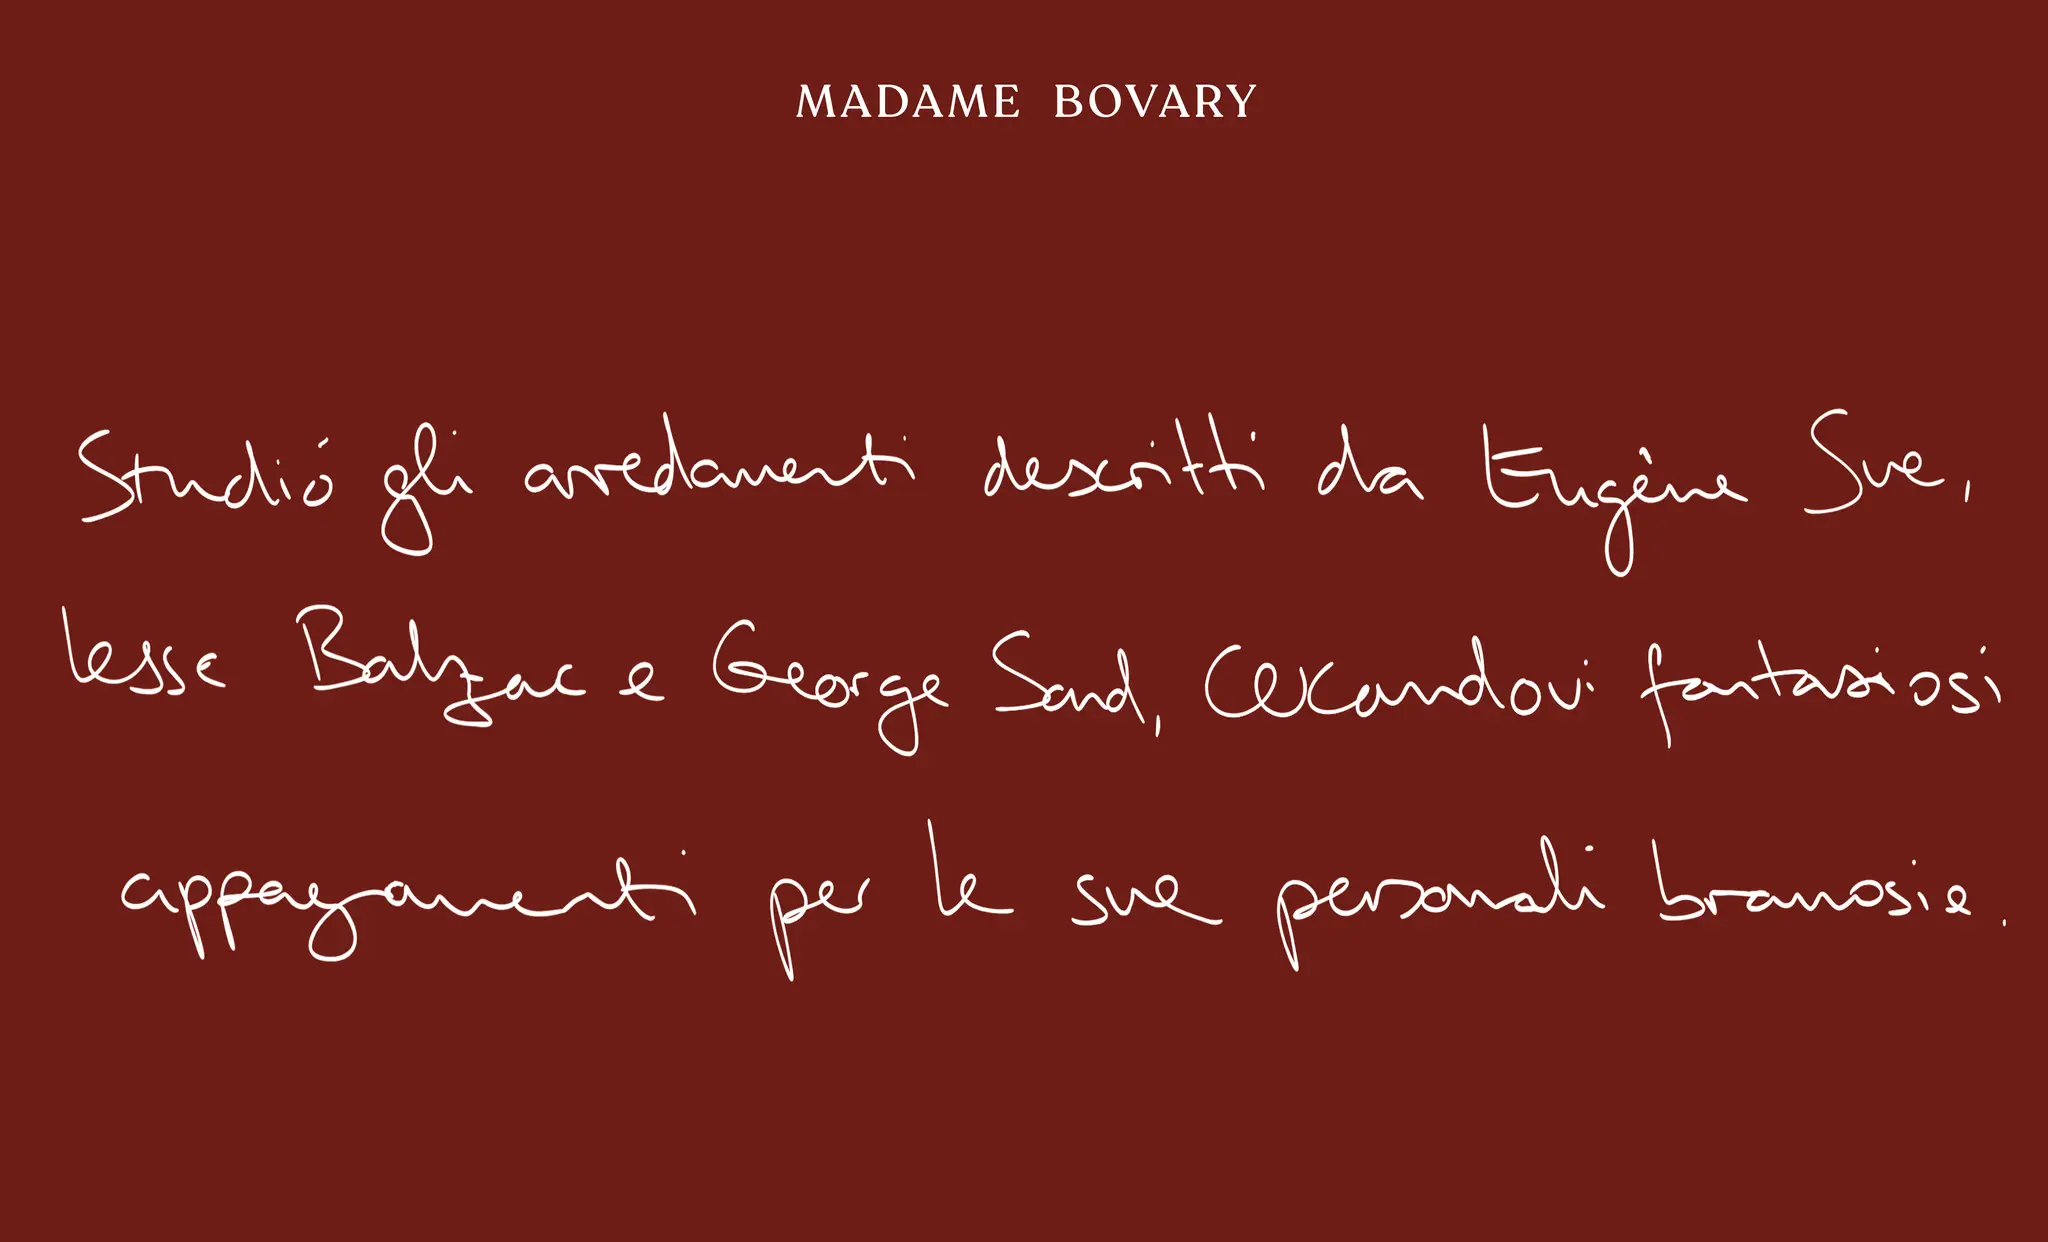 MADAME BOVARY
Studió gli arredamenti descritti da Eugène Sue,
lesse Balzac e George Sand, cercandovi fantasiosi
appagamenti per le sue personali bramosie.